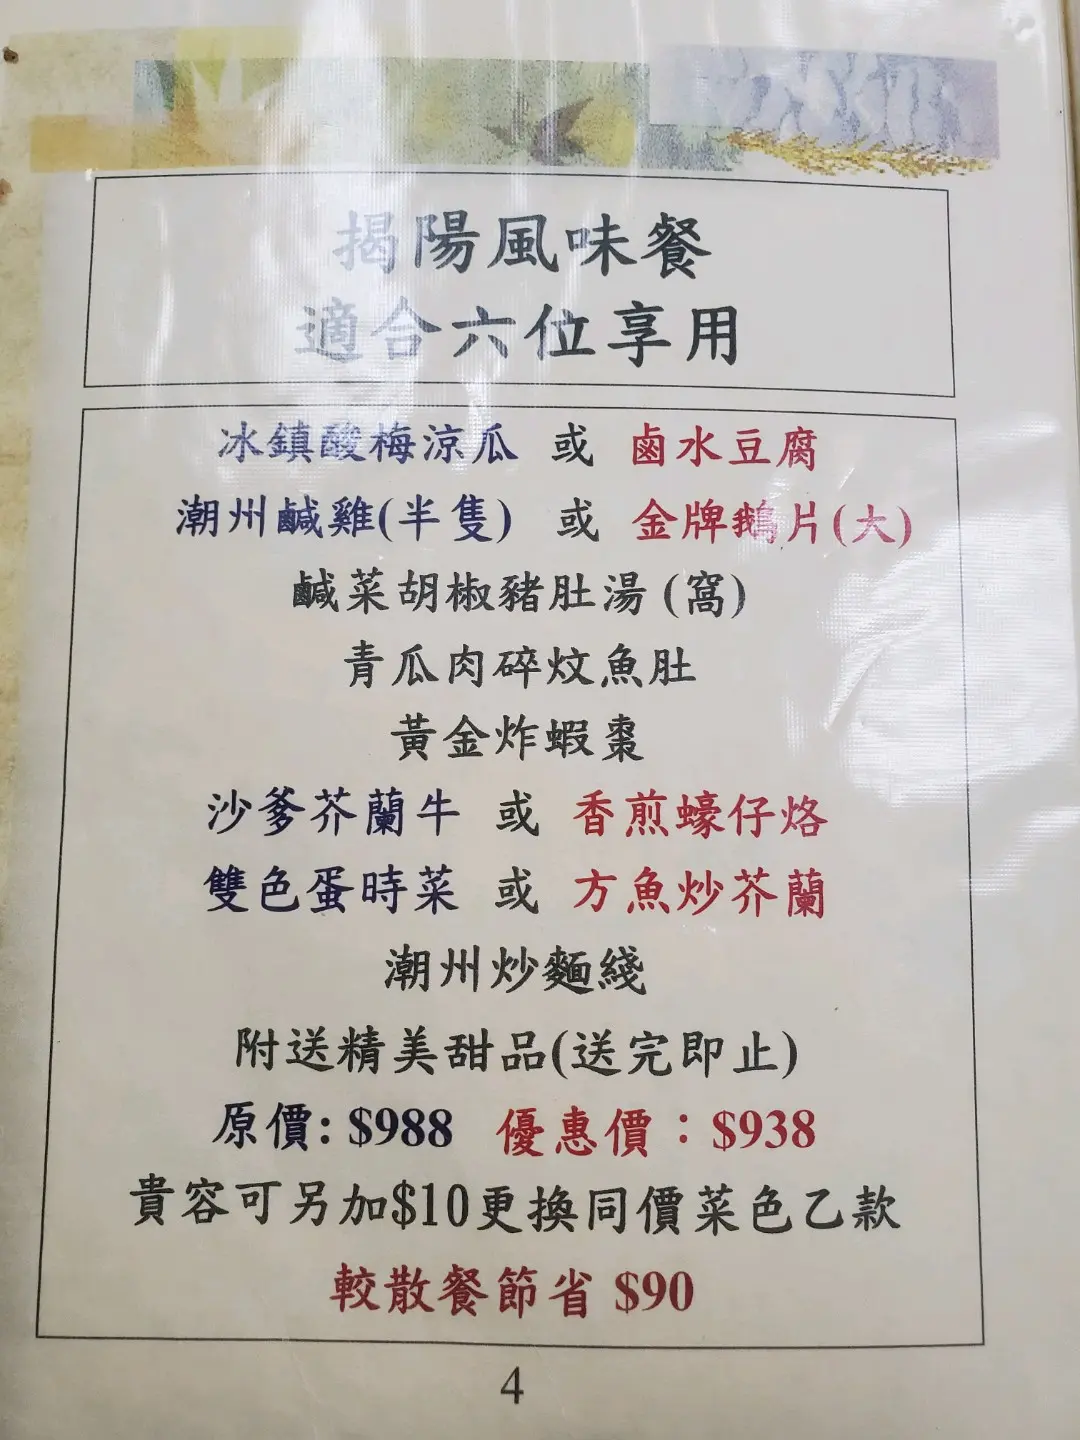 揭陽風味餐
適合六位享用
冰鎮酸梅涼瓜 或 鹵水豆腐
潮州鹹雞(半隻) 或 金牌鵝片(大)
鹹菜胡椒豬肚湯(窩)
青瓜肉碎炆魚肚
黃金炸蝦棗
沙爹芥蘭牛 或 香煎蠔仔烙
雙色蛋時菜 或 方魚炒芥蘭
潮州炒麵綫
附送精美甜品(送完即止)
原價: $988 優惠價：$938
貴容可另加$10更換同價菜色乙款
較散餐節省 $90
4